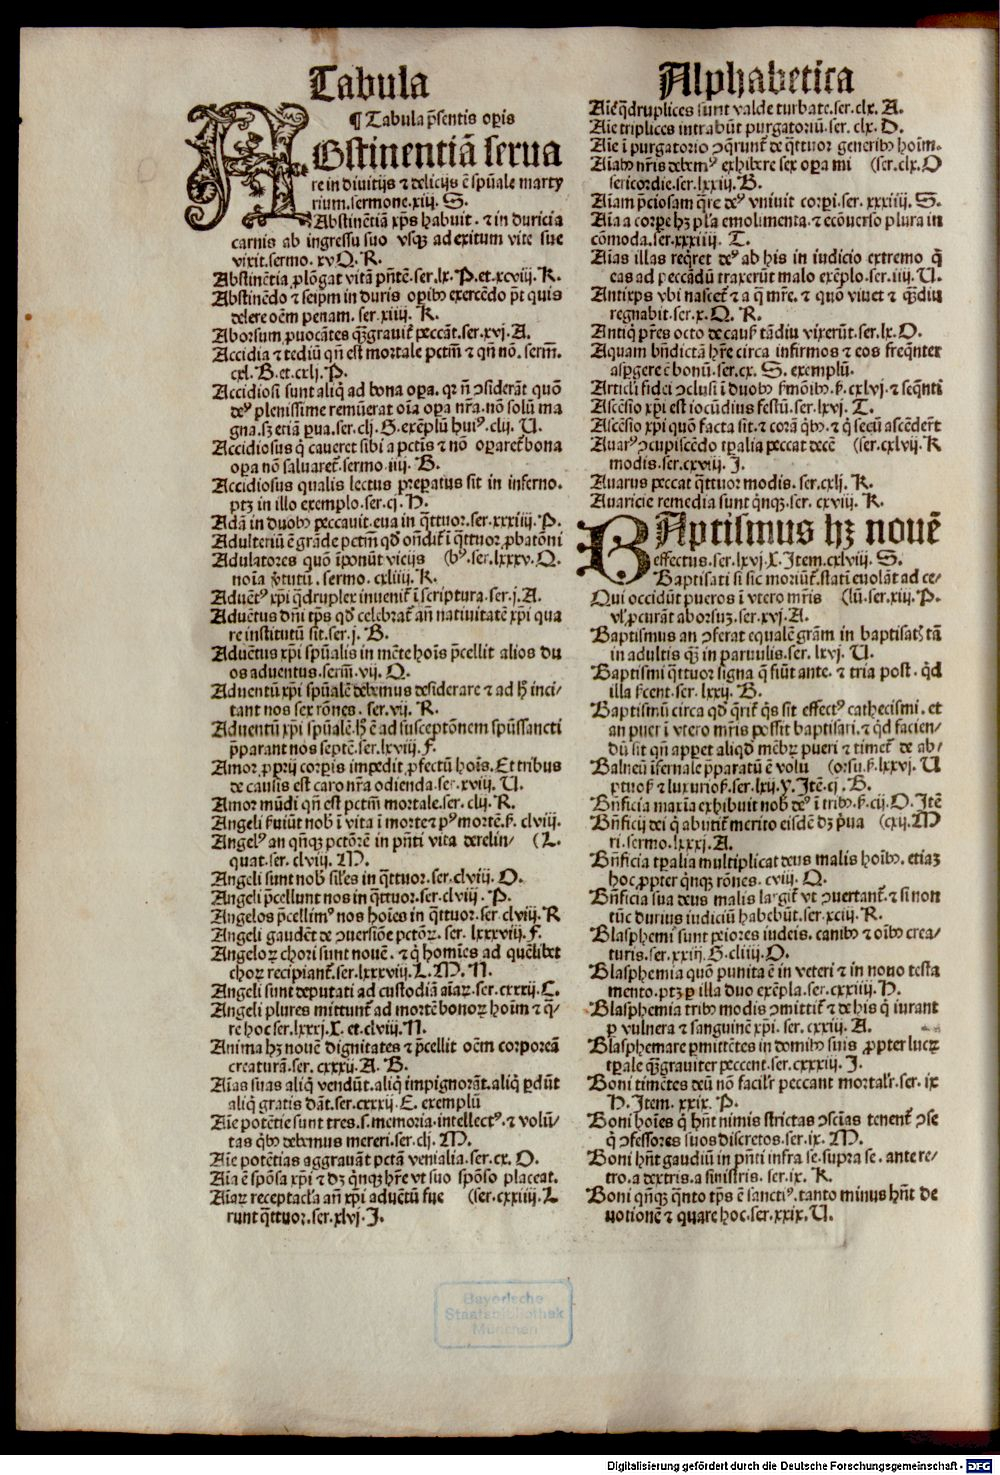 Tabula
¶ Tabula p̄sentis oꝑis
ABstinentiā serua
re in diuitijs ⁊ delicijs ē spūale marty
rium.sermone.xiij. S.
Abstinētiā xp̄s habuit. ⁊ in duricia
carnis ab ingressu suo vsqꝫ ad exitum vite sue
vixit.sermo.xv Q. R.
Abstinētia ꝓlōgat vitā pn̄tē.ser.lx. P.et.xcviij. K.
Abstinēdo ⁊ seipm in duris oꝑibꝰ exercēdo pt̄ quis
delere oēm penam. ser.xiiij. K.
Aborsum ꝓuocātes qꝫgrauit̄ peccāt.ser.xvj. A.
Accidia ⁊ tediū qn̄ est mortale pctm̄ ⁊ qn̄ nō. serm̄.
cxl. B.et.cxlj. P.
Accidiosi sunt aliq̄ ad bona oꝑa. qꝛ n̄ ɔsiderāt quō
deꝰ plenissime remūerat oīa oꝑa nr̄a.nō solū ma
gna.sꝫ etiā ꝑua.ser.clj. G.exēplū huiꝰ.clij. U.
Accidiosus q̄ caueret sibi a pctīs ⁊ nō oꝑaret̄ bona
oꝑa nō saluaret̄.sermo.iiij. B.
Accidiosus qualis lectus p̄reꝑatus sit in inferno.
ptꝫ in illo exemplo.ser.cj. H.
Adā in duobꝰ peccauit.eua in q̄ttuor.ser.xxxiij. P.
Adulteriū ē grāde pctm̄ qd̄ on̄dit̄ ī q̄ttuor ꝓbatōni
Adulatores quō īponūt vicijs (bꝰ.ser.lxxxv. Q.
noīa v̄tutū. sermo. cxliiij. K.
Aduētꝰ xp̄i q̄druplex inuenit̄ ī scriptura.ser.j. A.
Aduētus dn̄i tp̄s qd̄ celebrat̄ an̄ natiuitatē xp̄i qua
re institutū sit.ser.j. B.
Aduētus xp̄i spūalis in mēte hoīs p̄cellit alios du
os aduentus.serm̄.vij. Q.
Aduentū xp̄i spūalē debemus desiderare ⁊ ad h̄ inci/
tant nos sex rōnes. ser.vij. R.
Aduentū xp̄i spūalē.h̄ ē ad susceptōnem spūssancti
p̄parant nos septē.ser.lxviij. F.
Amor ꝓprij corꝑis impedit ꝓfectū hoīs. Et tribus
de causis est caro nr̄a odienda.ser.xviij. U.
Amor mūdi qn̄ est pctm̄ mortale.ser.clij. R.
Angeli ẜuiūt nob̄ ī vita ī morte ⁊ pꝰ mortē.ẜ. clviij.
Angelꝰ an qn̄qꝫ pctōrē in pn̄ti vita derelin/ (L.
quat.ser.clviij. M.
Angeli sunt nob̄ siłes in q̄ttuor.ser.clviij. O.
Angeli p̄cellunt nos in q̄ttuor.ser.clviij. P.
Angelos p̄cellimꝰ nos hoīes in q̄ttuor.ser.clviij. R
Angeli gaudēt de ɔuersiōe pctōꝝ. ser. lxxxviij. F.
Angeloꝝ chori sunt nouē. ⁊ q̄ homīes ad quēlibet
choꝝ recipiant̄.ser.lxxxviij. L. M. N.
Angeli sunt deputati ad custodiā aīaꝝ.ser.cxxxij. C.
Angeli plures mittunt̄ ad mortē bonoꝝ hoīm ⁊ q̄/
re hoc ser.lxxxj. X. et.clviij. N.
Anima hꝫ nouē dignitates ⁊ p̄cellit oēm corporeā
creaturā.ser. cxxxij. A. B.
Aīas suas aliq̄ vendūt.aliq̄ impignorāt.aliq̄ ꝑdūt
aliq̄ gratis dāt.ser.cxxxij. E. exemplū
Aīe potētie sunt tres.s.memoria.intellectꝰ.⁊ volū/
tas q̄bꝰ debemus mereri.ser.clj. M.
Aīe potētias aggrauāt pctā venialia.ser.cx. O.
Aīa ē spōsa xp̄i ⁊ dꝫ qn̄qꝫ hr̄e vt suo spōso placeat.
Aīaꝝ receptacl̄a an̄ xp̄i aduētū fue (ser.cxxiij. L
runt q̄ttuor.ser.xlvj. I.
Alphabetica
Aīe q̄druplices sunt valde turbate.ser.clx. A.
Aīe triplices intrabūt purgatoriū.ser. clx. D.
Aīe ī purgatorio ɔq̄runt̄ de q̄ttuor generibꝰ hoīm.
Aīabꝰ nr̄is debemꝰ exhibere sex oꝑa mi (ser.clx. O
sericordie.ser.lxxiij. B.
Aīam p̄ciosam q̄re deꝰ vniuit corꝑi.ser. xxxiiij. S.
Aīa a corꝑe hꝫ pl̄a emolimenta. ⁊ ecōuerso plura in
cōmoda.ser.xxxiiij. T.
Aīas illas reqret̄ deꝰ ab his in iudicio extremo q̄
eas ad peccādū traxerūt malo exēplo.ser.iiij. U.
Antixp̄s vbi nascet̄ ⁊ a q̄ mr̄e. ⁊ quō viuet ⁊ qꝫdiu
regnabit.ser.x. Q. R.
Antiq̄ pr̄es octo de causꝭ tādiu vixerūt.ser.lx. O.
Aquam bn̄dictā hr̄e circa infirmos ⁊ eos freq̄nter
asꝑgere ē bonū.ser.cx. S. exemplū.
Articl̄i fidei ɔclusi ī duobꝰ ẜmōibꝰ.ẜ. cxlvj. ⁊ seq̄nti
Ascēsio xp̄i est iocūdius festū.ser.lxvj. T.
Ascēsio xp̄i quō facta sit. ⁊ corā q̄bꝰ. ⁊ q̄ secū ascēdert̄
Auarꝰ ɔcupiscēdo tꝑalia peccat decē (ser.cxlvij. K
modis.ser.cxviij. I.
Auarus peccat q̄ttuor modis. ser.cxlj. K.
Auaricie remedia sunt qn̄qꝫ.ser. cxviij. K.
BAptismus hꝫ nouē
effectus.ser.lxvj. X. Item.cxlviij. S.
Baptisati si sic moriūt̄.stati euolāt ad ce/
Qui occidūt pueros ī vtero mr̄is (lū.ser.xiij. P.
vl̄ ꝓcurāt aborsuꝫ.ser.xvj. A.
Baptismus an ɔferat equalē grām in baptisatꝭ tā
in adultis qꝫ in paruulis.ser. lxvj. U.
Baptismi q̄ttuor signa q̄ fiūt ante. ⁊ tria post. qd̄
illa ẜcent.ser.lxxij. B.
Baptismū circa qd̄ q̄rit̄ q̄s sit effectꝰ cathecismi. et
an puer ī vtero mr̄is possit baptisari.⁊ qd̄ facien/
dū sit qn̄ apꝑet aliqd̄ mēbꝝ pueri ⁊ timet̄ de ab/
Balneū īfernale p̄paratū ē volu (orsu.ẜ.lxxvj. U
ptuoẜ ⁊ luxurioẜ.ser.lxij. Y. Itē.cj. B.
Bn̄ficia maxīa exhibuit nob̄ deꝰ ī tribꝰ.ẜ.cij. O. Itē
Bn̄ficij dei q̄ abutit̄ merito eisdē dꝫ p̄ua (cxij. M
ri.sermo.lxxxj. A.
Bn̄ficia tꝑalia multiplicat deus malis hoībꝰ. etiaꝫ
hoc ꝓpter qn̄qꝫ rōnes. cviij. Q.
Bn̄ficia sua deus malis largit̄ vt ɔuertant̄. ⁊ si non
tūc durius iudiciū habebūt.ser.xcij. R.
Blasphemi sunt peiores iudeis. canibꝰ ⁊ oībꝰ crea/
turis.ser.xxiij. G.cliiij. O.
Blasphemia quō punita ē in veteri ⁊ in nouo testa
mento.ptꝫ ꝑ illa duo exēpla.ser.cxxiiij. H.
Blasphemia tribꝰ modis ɔmittit̄ ⁊ de his q̄ iurant
ꝑ vulnera ⁊ sanguinē xp̄i. ser. cxxiij. A.
Blasphemare ꝑmittētes in domibꝰ suis ꝓpter lucꝝ
tꝑale qꝫgrauiter peccent.ser.cxxxiij. I.
Boni timētes deū nō facilꝛ̄ peccant mortalꝛ̄.ser. ix
H. Item. xxix. P.
Boni hoīes q̄ hn̄t nimis strictas ɔsciās tenent̄ ɔse
q̄ ɔfessores suos discretos.ser.ix. M.
Boni hn̄t gaudiū in pn̄ti infra se.supra se. ante re/
tro.a dextris.a sinistris. ser.ix. K.
Boni qn̄qꝫ q̄nto tp̄s ē sanctiꝰ.tanto minus hn̄t de
uotionē ⁊ quare hoc.ser.xxix. U.
Bayerische
Staatsbibliothek
München
Digitalisierung gefördert durch die Deutsche Forschungsgemeinschaft - DFG